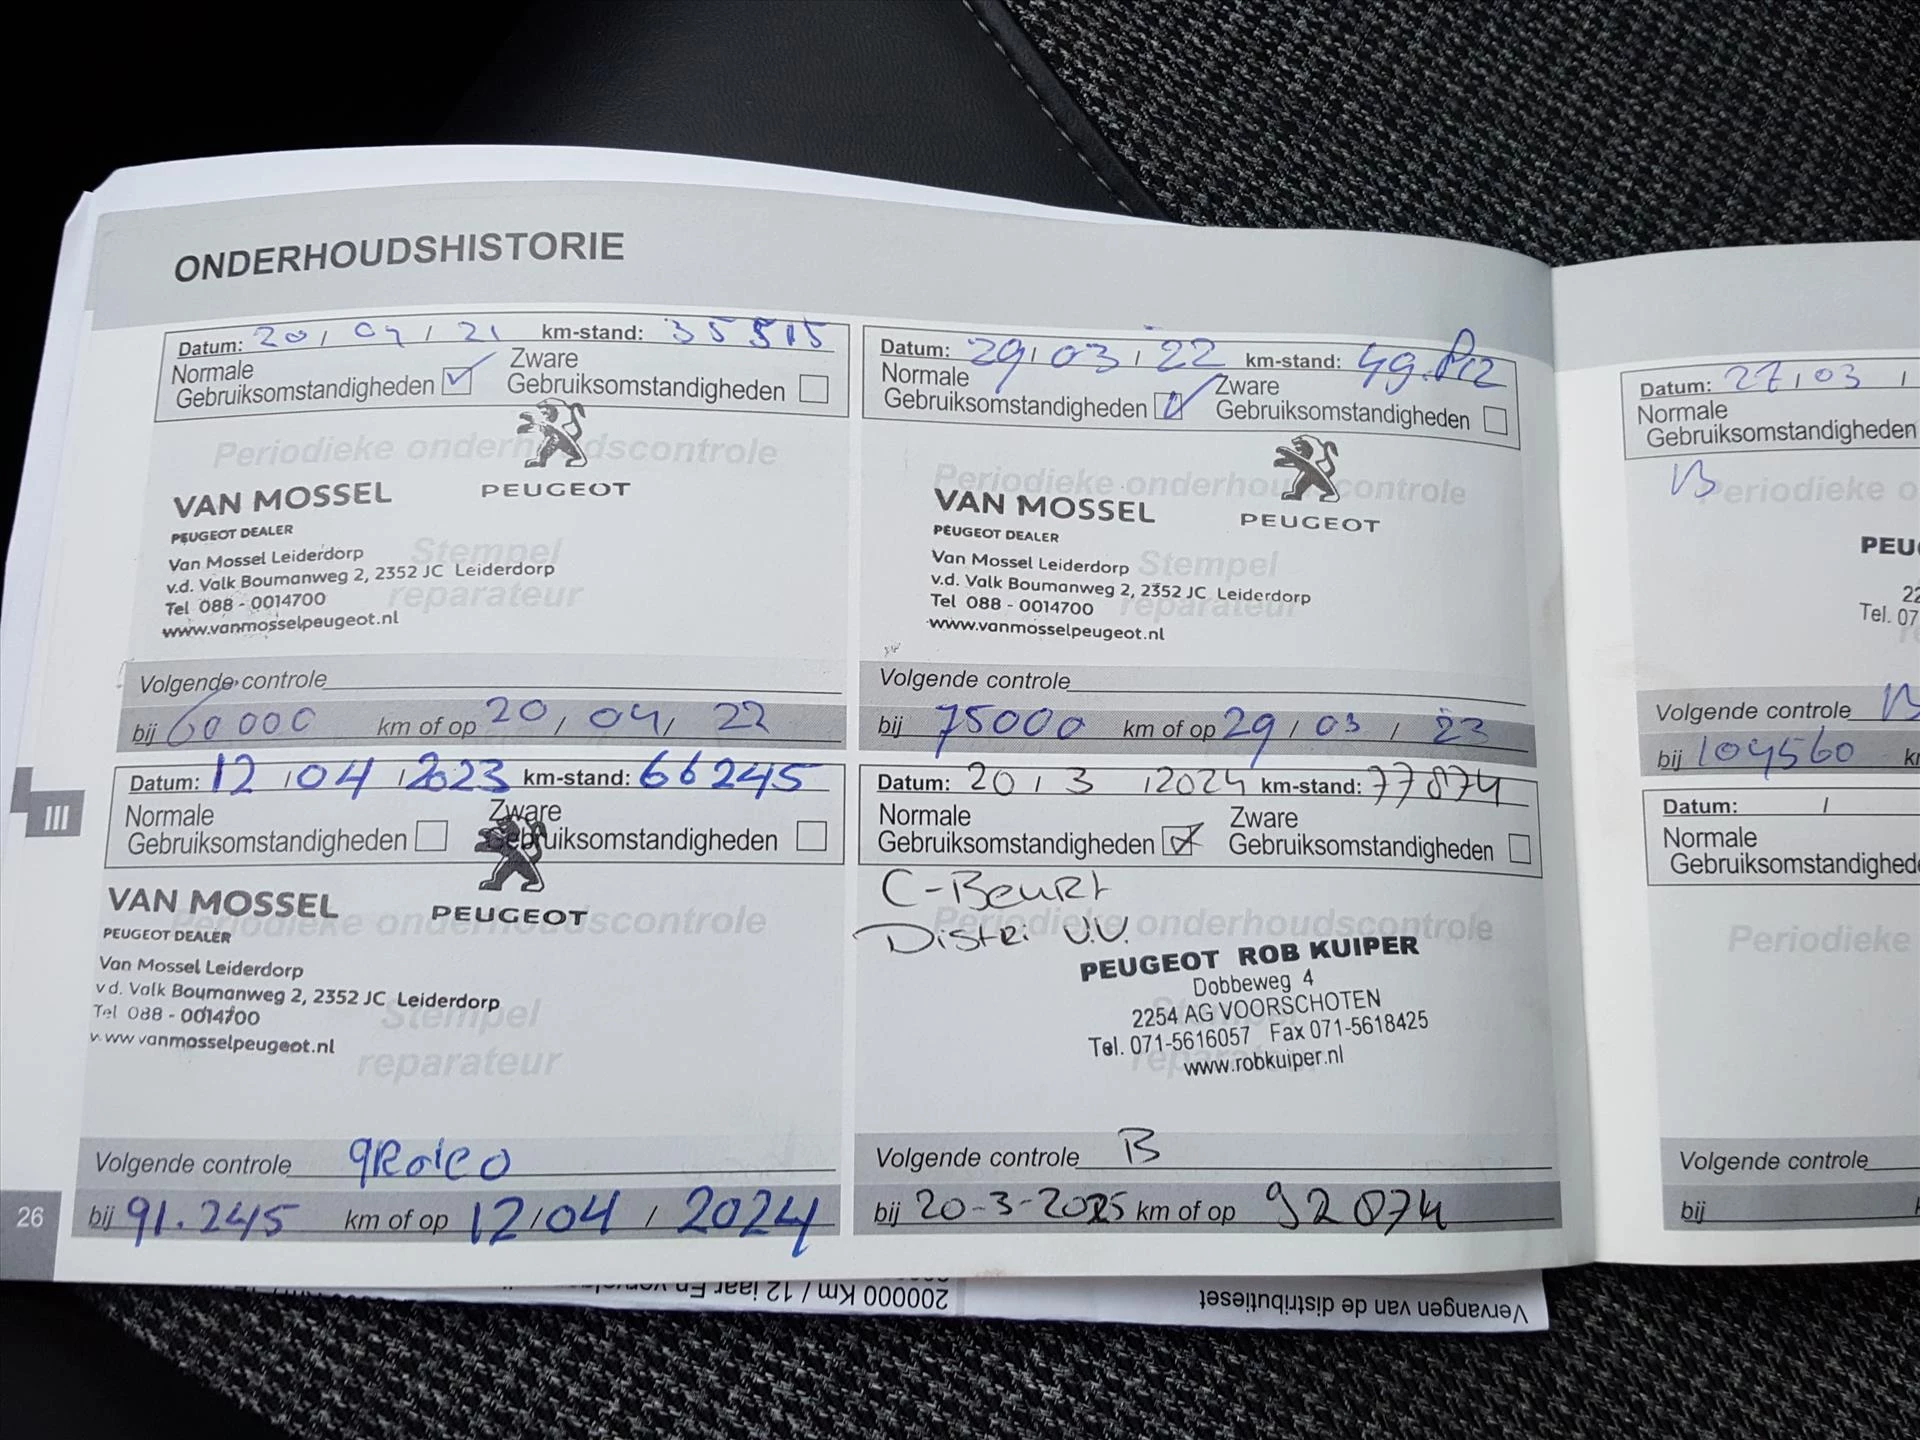 ONDERHOUDSHISTORIE
Datum: 20 / 04 / 21 km-stand: 35515
Normale
Gebruiksomstandigheden
Zware
Gebruiksomstandigheden
Periodieke onderhoudscontrole
VAN MOSSEL
PEUGEOT DEALER
PEUGEOT
Van Mossel Leiderdorp
v.d. Valk Boumanweg 2, 2352 JC Leiderdorp
Tel 088 - 0014700
www.vanmosselpeugeot.nl
Stempel
reparateur
Volgende controle
bij 60000 km of op 20 / 04 / 22
Datum: 29 / 03 / 22 km-stand:
Normale
Gebruiksomstandigheden
Zware
Gebruiksomstandigheden
Periodieke onderhoudscontrole
VAN MOSSEL
PEUGEOT DEALER
PEUGEOT
Van Mossel Leiderdorp
v.d. Valk Boumanweg 2, 2352 JC Leiderdorp
Tel 088 - 0014700
www.vanmosselpeugeot.nl
Stempel
reparateur
Volgende controle
bij 75000 km of op 29 / 03 / 23
Datum: 12 / 04 / 2023 km-stand: 66245
Normale
Gebruiksomstandigheden
Zware
Gebruiksomstandigheden
Periodieke onderhoudscontrole
VAN MOSSEL
PEUGEOT DEALER
PEUGEOT
Van Mossel Leiderdorp
v.d. Valk Boumanweg 2, 2352 JC Leiderdorp
Tel 088 - 0014700
www.vanmosselpeugeot.nl
Stempel
reparateur
Volgende controle
bij 91.245 km of op 12 / 04 / 2024
Datum: 20 / 3 / 2024 km-stand: 77874
Normale
Gebruiksomstandigheden
Zware
Gebruiksomstandigheden
C-Beurt
Distri V.V.
Periodieke onderhoudscontrole
PEUGEOT ROB KUIPER
Dobbeweg 4
2254 AG VOORSCHOTEN
Tel. 071-5616057 Fax 071-5618425
www.robkuiper.nl
Volgende controle B
bij 20-3-2025 km of op 92874
III
26
Datum: 27 / 03 /
Normale
Gebruiksomstandigheden
B
Periodieke o
PEU
22
Tel. 07
Volgende controle B
bij 104560 k
Datum: /
Normale
Gebruiksomstandighede
Periodieke
Volgende controle
bij
Vervangen van de distributieset
200000 Km / 12 jaar En